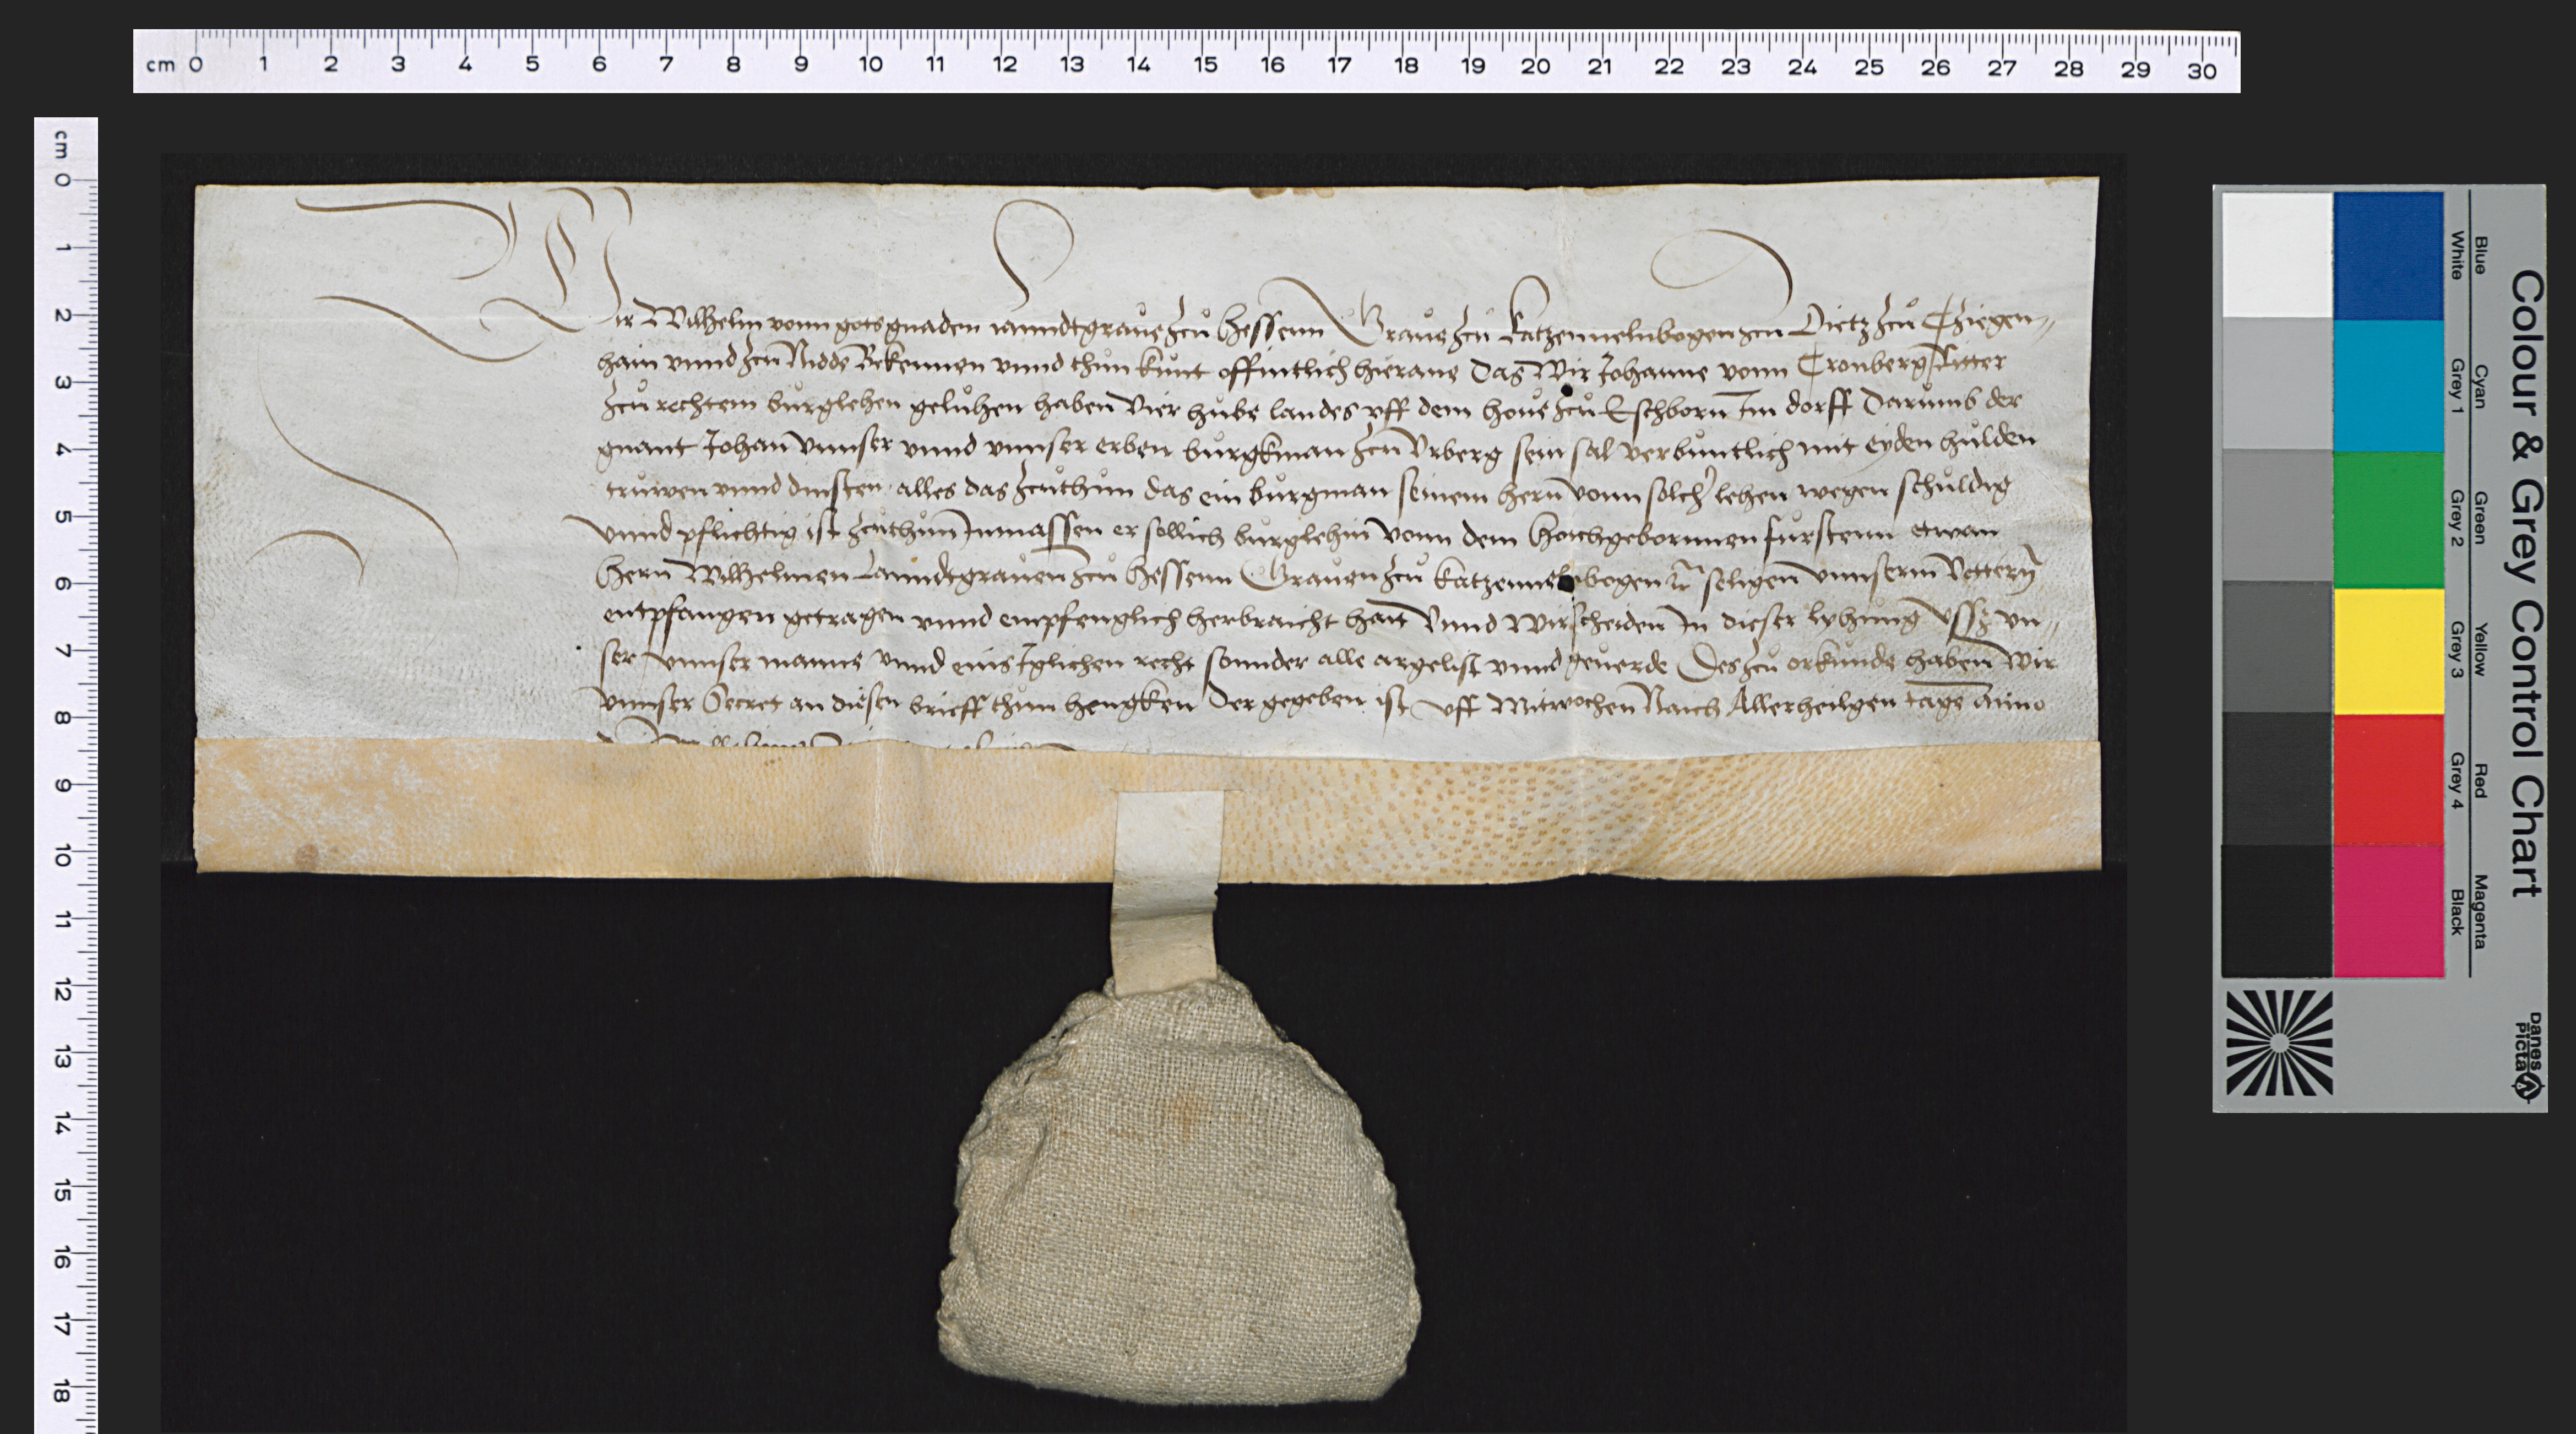 cm 0 1 2 3 4 5 6 7 8 9 10 11 12 13 14 15 16 17 18 19 20 21 22 23 24 25 26 27 28 29 30
cm 0 1 2 3 4 5 6 7 8 9 10 11 12 13 14 15 16 17 18
Wir Wilhelm vonn gots gnaden lanndtgraue zcu Hessenn Graue zcu Katzennelnbogen zcu Dietz zcu Cziegen-
hain vnnd zcu Nidde Bekennen vnnd thun kunt offintlich hierane Das Wir Johanne vonn Cronberg Ritter
zcu rechtem burglehen geluhen haben Vier hube landes vff dem houe zcu Eschborn Im dorff Darumb der
gnant Johan vnnser vnnd vnnser erben burgkman zcu Urberg sein sal verbuntlich mit eyden hulden
truwen vnnd dinsten alles das zcuthun das ein burgman seinem hern vonn solcher lehen wegen schuldig
vnnd pflichtig ist zcuthun Inmassen er sollich burglehin vonn dem Hochgebornnen furstenn etwan
Hern Wilhelmen Lanndtgrauen zcu Hessenn Grauen zcu Katzennelnbogen seligen vnnserm Vettern
entpfangen getragen vnnd empfenglich herbraicht hait Vnnd Wir scheiden In dieser lyhung vssz vn-
ser vnnser manne vnnd einis Iglichen recht sonnder alle argelist vnnd geuerde Des zcu orkunde haben Wir
vnnser Secret an diesen brieff thun hengken Der gegeben ist vff Mitwochen Naich Allerheilgen tage Anno
Colour & Grey Control Chart
Blue Cyan Green Yellow Red Magenta
White Grey 1 Grey 2 Grey 3 Grey 4 Black
Danes
Picta